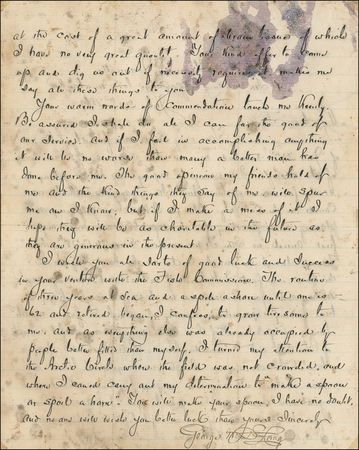 at the cost of a great amount of brain tissue of which
I have no very great quantity. Your kind offer to come
up and dig us out if necessity requires it makes me
say all these things to you.
Your warm words of Commendation touch me Keenly
Be assured I shall do all I can for the good of
our Service. and if I fail in accomplishing anything
it will be no worse than many a better man has
done before me. The good opinions my friends hold of
me and the kind things they say of me will spur
me on I know, but if I make a mess of it I
hope they will be as charitable in the future as
they are generous in the present.
I wish you all sorts of good luck and success
in your venture with the Fish Commission. The routine
of three years at Sea and a spell ashore until one is
62 and retired began, I confess, to grow tiresome to
me. and as everything else was already occupied by
people better fitted than myself, I turned my attention to
the Arctic Circle where the field was not crowded, and
where I could carry out my determination to "make a spoon
or spoil a horn". You will make your spoon, I have no doubt.
and no one will wish you better luck than yours Sincerely
George W. De Long